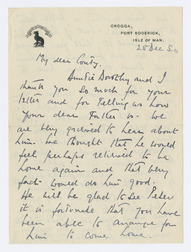 CROGGA,
PORT SODERICK,
ISLE OF MAN.
28 Dec 50
My dear
Auntie Dorothy and I
thank you so much for your
letter and for telling us how
your dear Father is. We
are very grieved to hear about
him. We thought that he would
feel perhaps relieved to be
home again and that very
fact would do him good.
He will be glad to see Peter
It is fortunate that you have
been able to arrange for
him to come home.